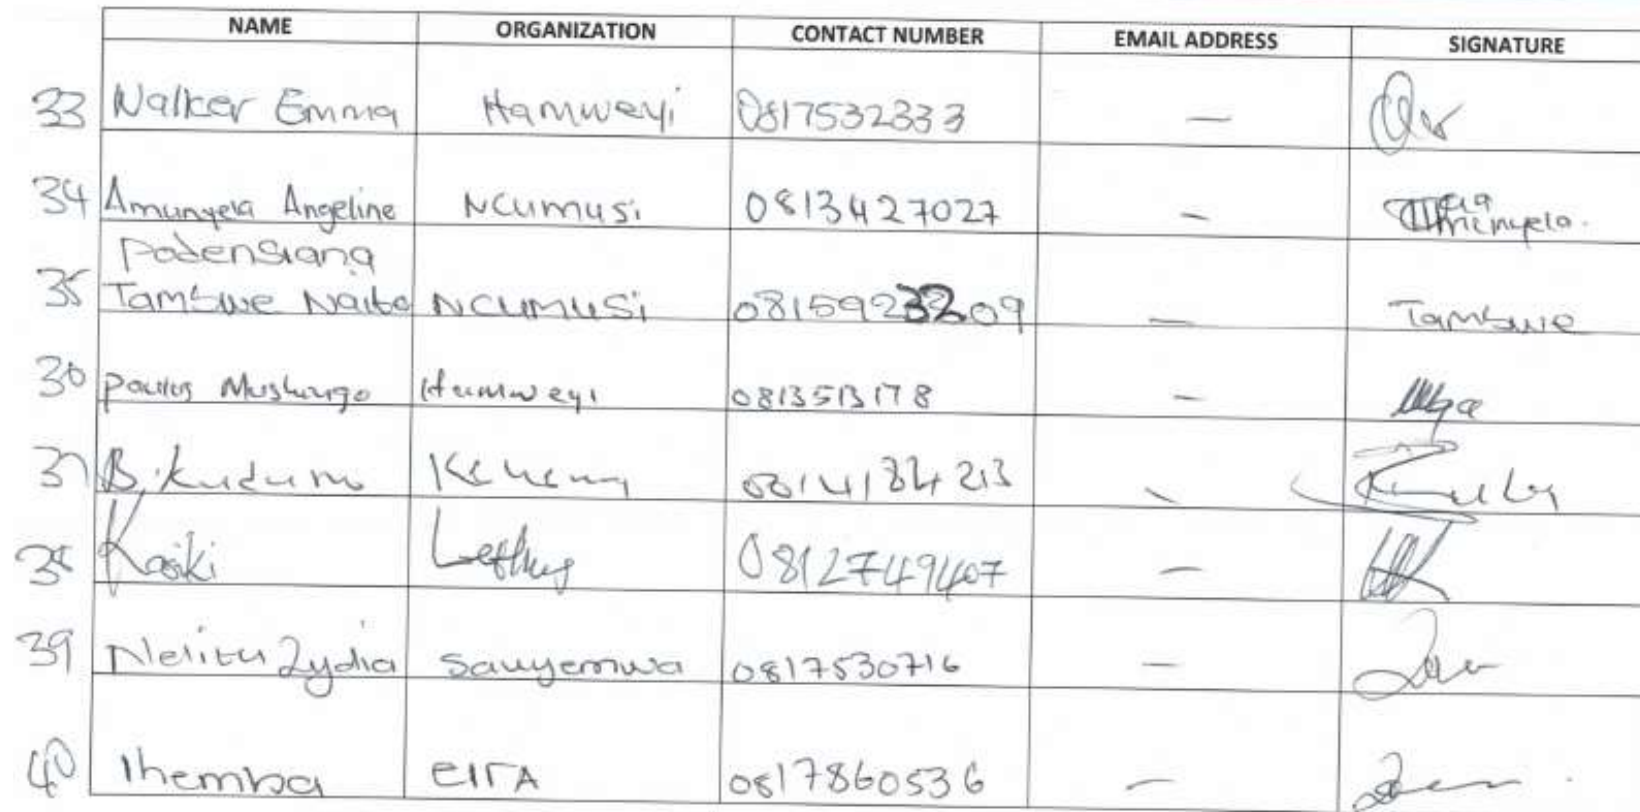 NAME ORGANIZATION CONTACT NUMBER EMAIL ADDRESS SIGNATURE
33 Walker Emma Hamweyi 0817532333 —
34 Amunyela Angeline NCUMUSi 0813427027 — Amunyela.
Podensiana
35 Tambwe Naibo NCUMUSi 0815923209 — Tambwe
36 Paulus Mushungo Hamweyi 0813513178 —
37 B. Kudumo 0814134213
38 Kasiki 0812749407 —
39 Nelitu Lydia Sauyemwa 0817530716 —
40 Themba EITA 0817860536 —